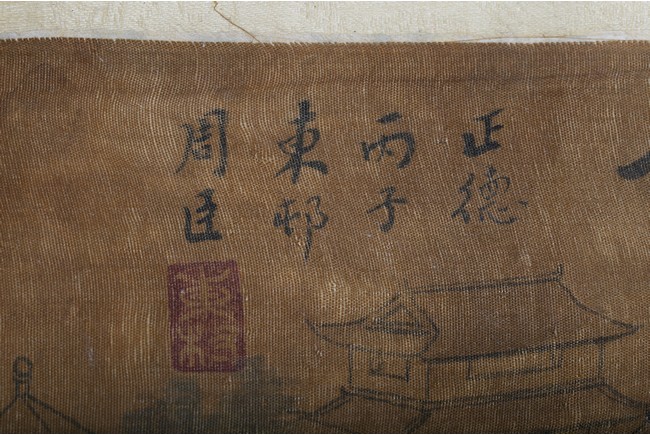 正德
丙子
東邨
周臣